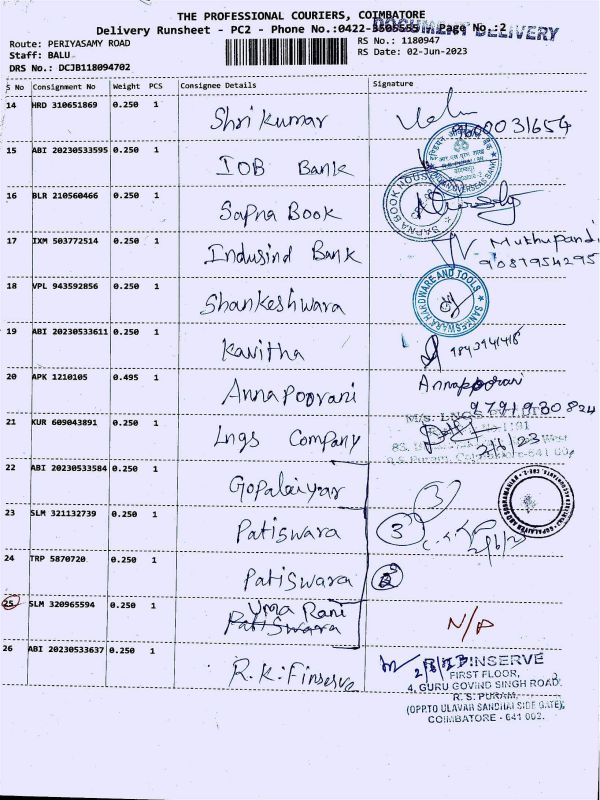 THE PROFESSIONAL COURIERS, COIMBATORE
Delivery Runsheet - PC2 - Phone No.:0422-3505555 Page No.:2
DOCUMENT DELIVERY
Route: PERIYASAMY ROAD
RS No.: 1180947
Staff: BALU
RS Date: 02-Jun-2023
DRS No.: DCJB118094702
S No Consignment No Weight PCS Consignee Details Signature
14 HRD 310651869 0.250 1 Shri Kumar
15 ABI 20230533595 0.250 1 IOB Bank
16 BLR 210560466 0.250 1 Sapna Book
SAPNA BOOK HOUSE
17 IXM 503772514 0.250 1 Indusind Bank Muthupandi
9087954295
18 VPL 943592856 0.250 1 Shankeshwara
SANKESWARA HARDWARE AND TOOLS
19 ABI 20230533611 0.250 1 Kavitha
20 APK 1210105 0.495 1 Annapoorani Annapoorani
9791930824
21 KUR 609043891 0.250 1 Lngs Company
M/S. LNGS
2/6/23
22 ABI 20230533584 0.250 1 Gopalaiyar
23 SLM 321132739 0.250 1 Patiswara 3
24 TRP 5870720 0.250 1 Patiswara
25 SLM 320965594 0.250 1 Uma Rani N/A
Patiswara
26 ABI 20230533637 0.250 1 R.K. Finserve
FINSERVE
FIRST FLOOR,
4, GURU GOVIND SINGH ROAD
R. S. PURAM,
(OPP.TO ULAVAR SANDHAI SIDE GATE),
COIMBATORE - 641 002.